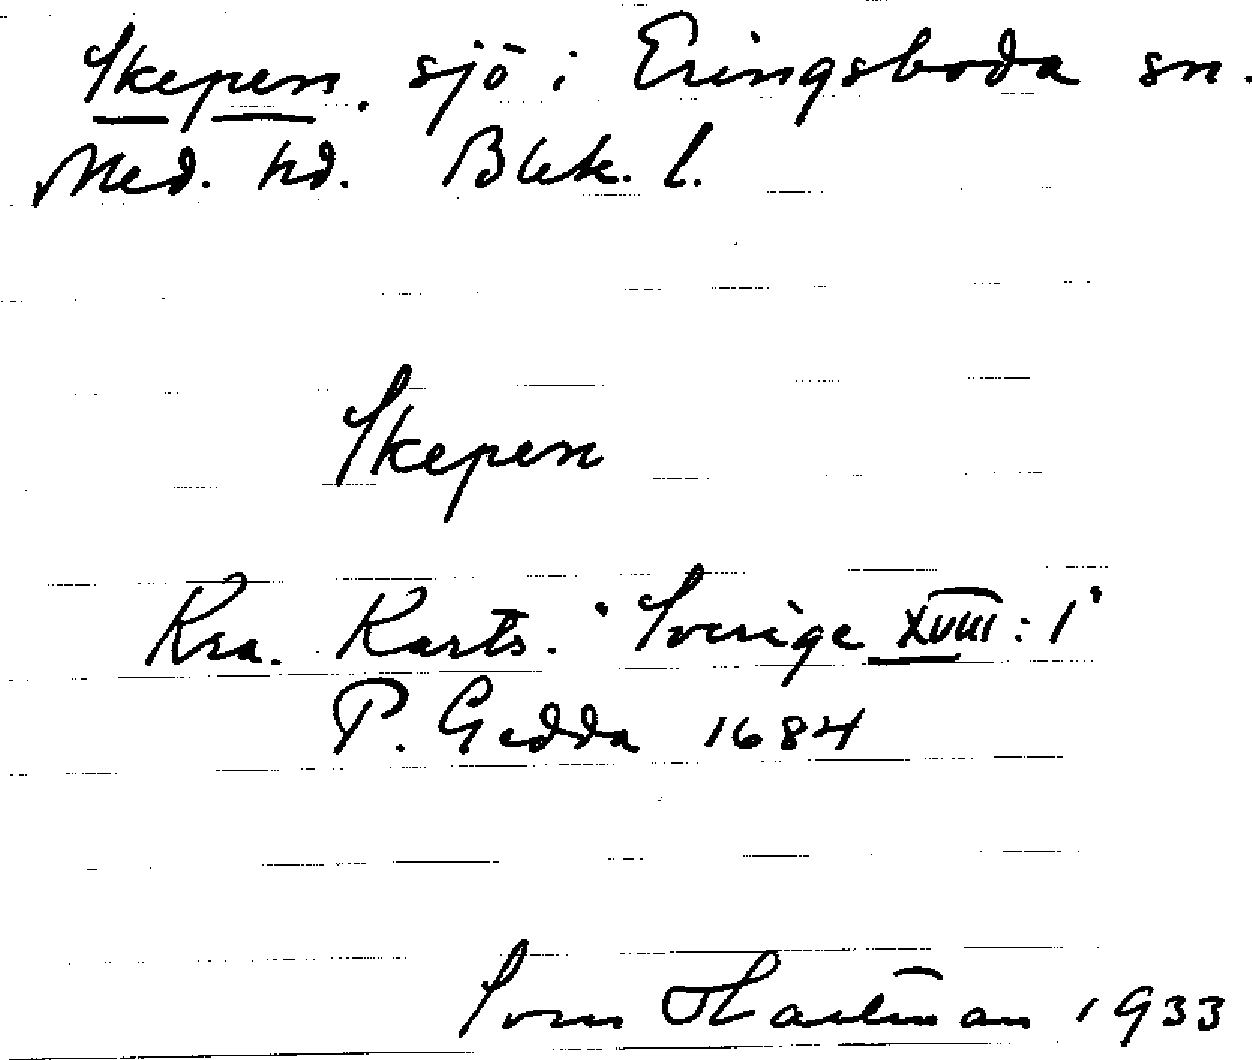 Skepen. sjö i Eringsboda sn.
Med. hd. Blek. l.
Skepen
Kra. Karts. "Sverige XVIII: 1"
P. Gedda 1684
Sven Hartman 1933